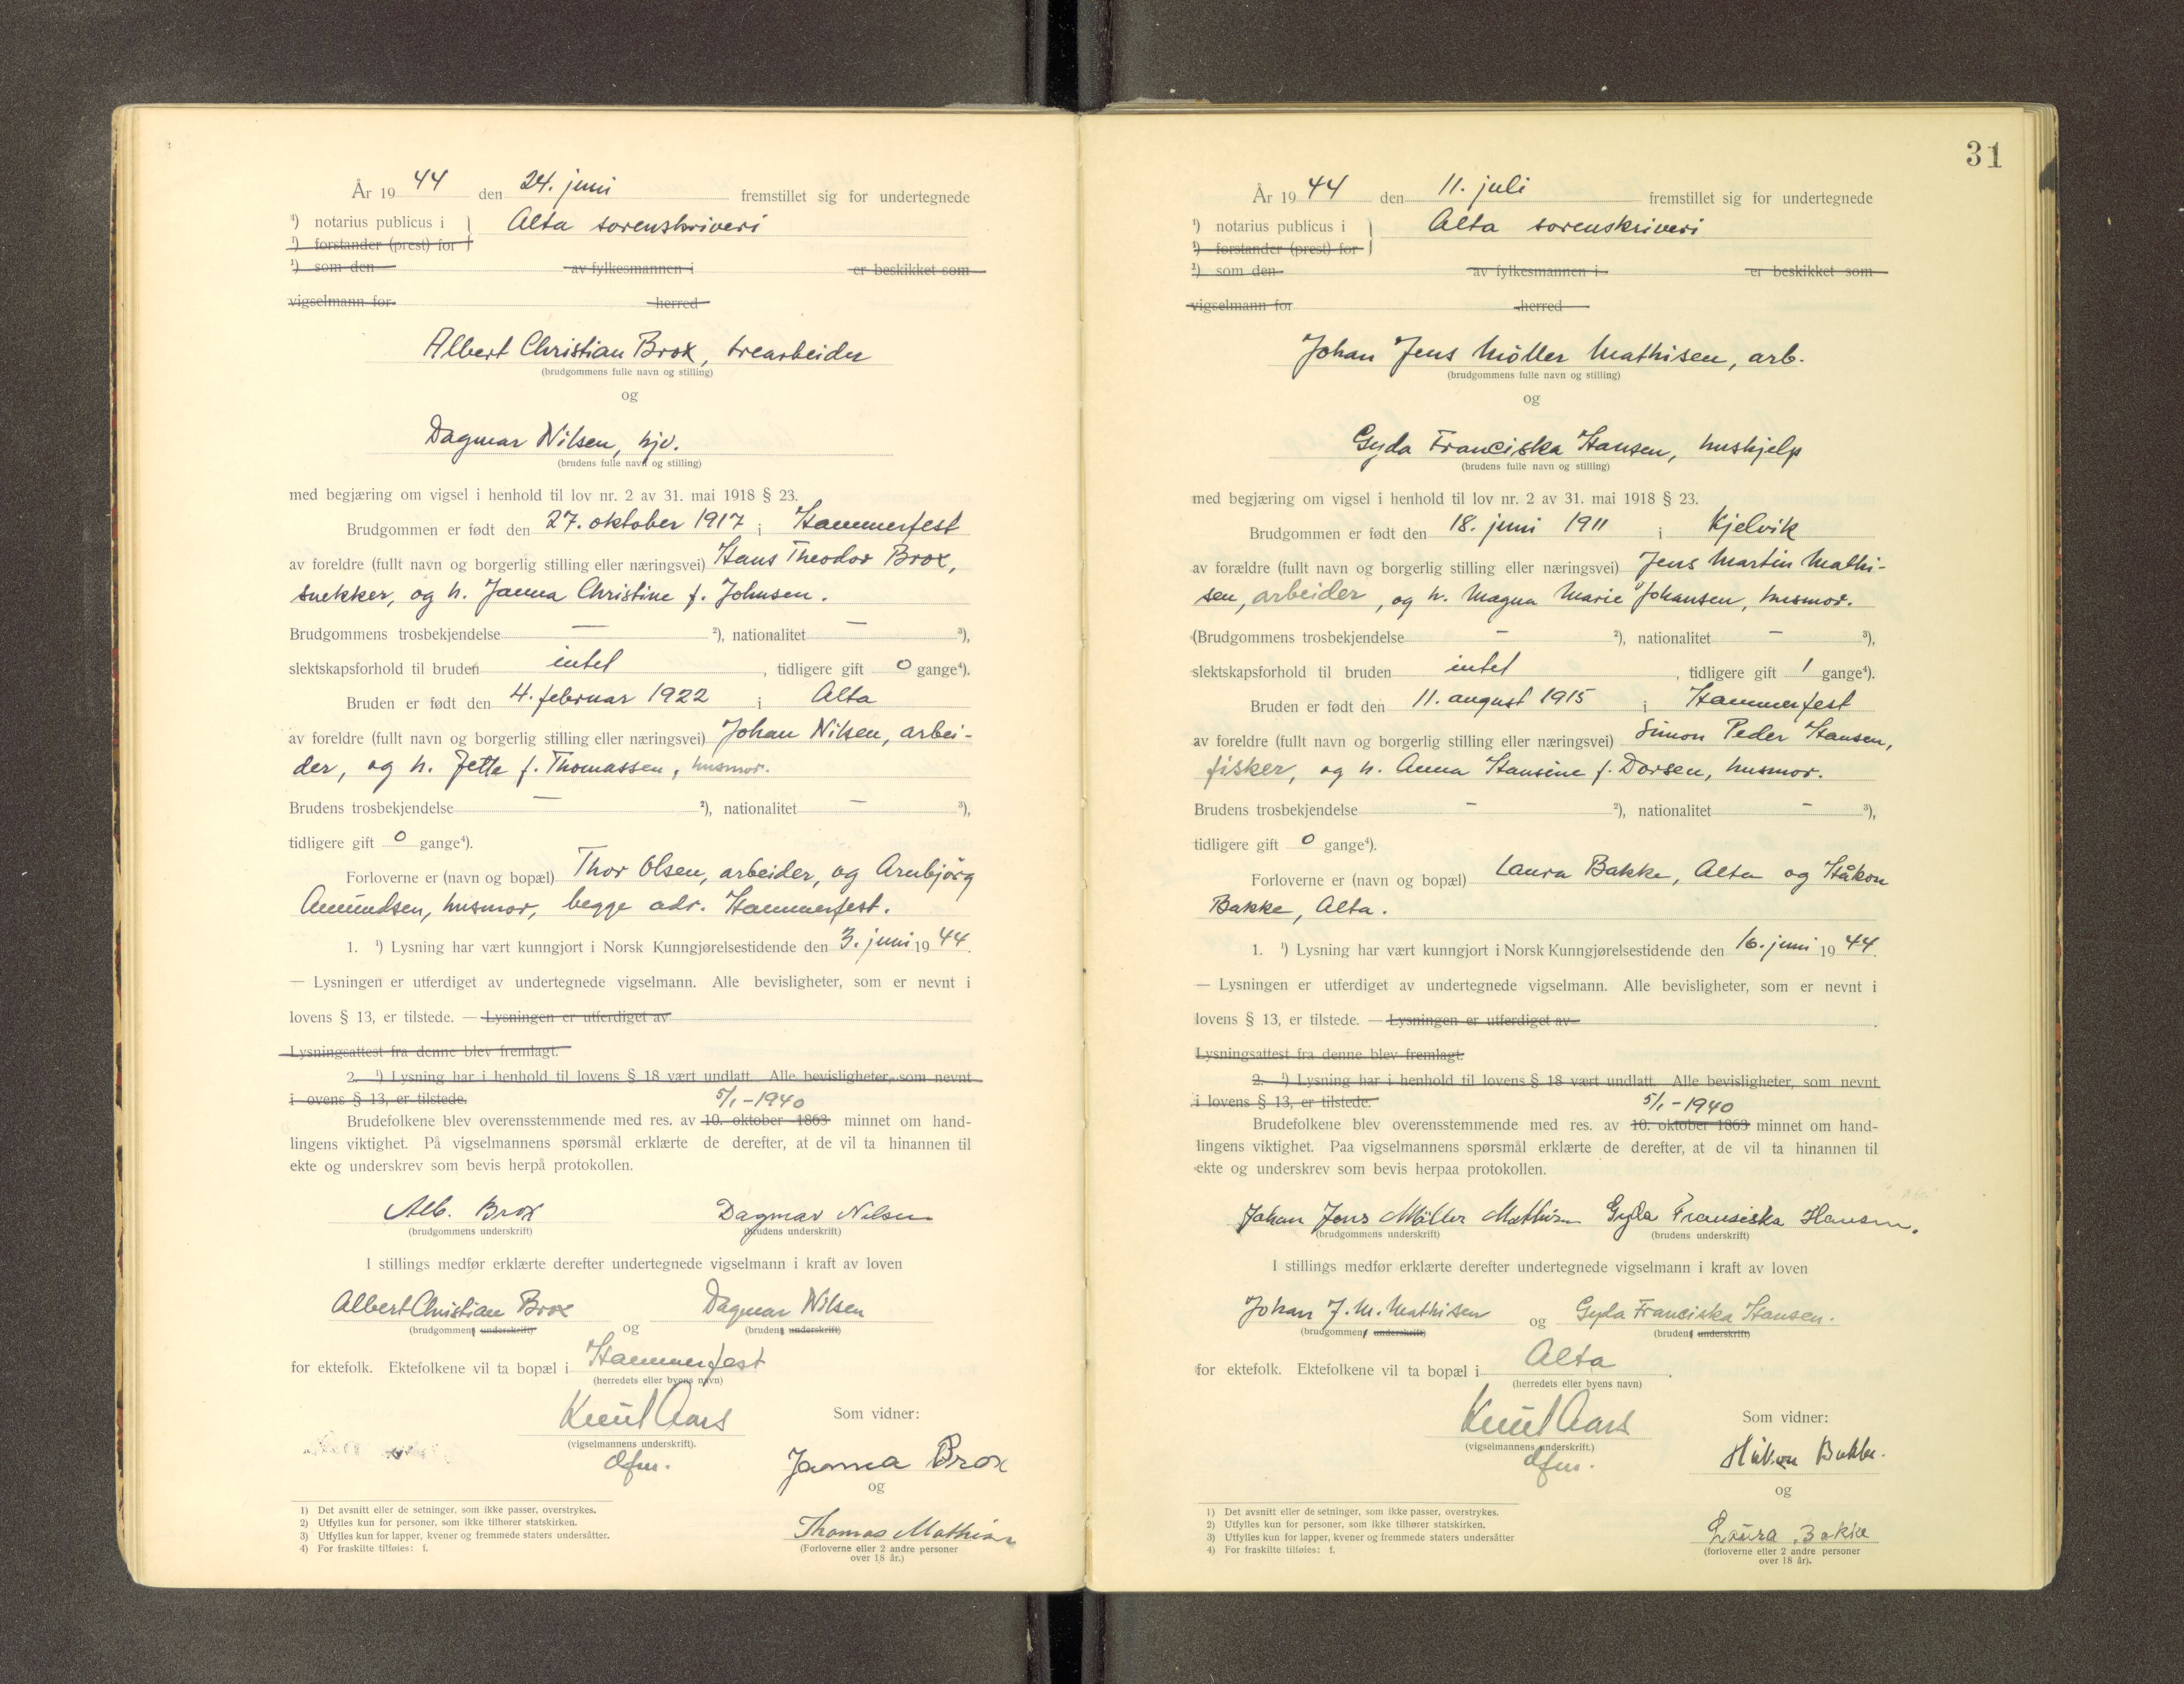 År 19 44 den 24. juni fremstillet sig for undertegnede
¹) notarius publicus i } Alta sorenskriveri
¹) forstander (prest) for
¹) som den av fylkesmannen i er beskikket som
vigselmann for herred
Albert Christian Brox, trearbeider
(brudgommens fulle navn og stilling)
og
Dagmar Nilsen, hjv.
(brudens fulle navn og stilling)
med begjæring om vigsel i henhold til lov nr. 2 av 31. mai 1918 § 23.
Brudgommen er født den 27. oktober 1917 i Hammerfest
av foreldre (fullt navn og borgerlig stilling eller næringsvei) Hans Theodor Brox,
snekker, og h. Janna Christine f. Johnsen.
Brudgommens trosbekjendelse — ²), nationalitet — ³),
slektskapsforhold til bruden intet , tidligere gift 0 gange⁴).
Bruden er født den 4. februar 1922 i Alta
av foreldre (fullt navn og borgerlig stilling eller næringsvei) Johan Nilsen, arbei-
der, og h. Jetta f. Thomassen, husmor.
Brudens trosbekjendelse — ²), nationalitet — ³),
tidligere gift 0 gange⁴).
Forloverne er (navn og bopæl) Thor Olsen, arbeider, og Arnbjörg
Amundsen, husmor, begge adr. Hammerfest.
1. ¹) Lysning har vært kunngjort i Norsk Kunngjørelsestidende den 3. juni 19 44.
— Lysningen er utferdiget av undertegnede vigselmann. Alle bevisligheter, som er nevnt i
lovens § 13, er tilstede. — Lysningen er utferdiget av
Lysningsattest fra denne blev fremlagt.
2. ¹) Lysning har i henhold til lovens § 18 vært undlatt. Alle bevisligheter, som nevnt
i ovens § 13, er tilstede. 5/1-1940
Brudefolkene blev overensstemmende med res. av 10. oktober 1863 minnet om hand-
lingens viktighet. På vigselmannens spørsmål erklærte de derefter, at de vil ta hinannen til
ekte og underskrev som bevis herpå protokollen.
Alb. Brox Dagmar Nilsen
(brudgommens underskrift) (brudens underskrift)
I stillings medfør erklærte derefter undertegnede vigselmann i kraft av loven
Albert Christian Brox og Dagmar Nilsen
(brudgommens underskrift) (brudens underskrift)
for ektefolk. Ektefolkene vil ta bopæl i Hammerfest
(herredets eller byens navn)
Knut Aars Som vidner:
(vigselmannens underskrift).
dfm. Janna Brox
og
Thomas Mathisen
(Forloverne eller 2 andre personer
over 18 år.)
1) Det avsnitt eller de setninger, som ikke passer, overstrykes.
2) Utfylles kun for personer, som ikke tilhører statskirken.
3) Utfylles kun for lapper, kvener og fremmede staters undersåtter.
4) For fraskilte tilføies: f.
31
År 19 44 den 11. juli fremstillet sig for undertegnede
¹) notarius publicus i } Alta sorenskriveri
¹) forstander (prest) for
¹) som den av fylkesmannen i er beskikket som
vigselmann for herred
Johan Jens Möller Mathisen, arb.
(brudgommens fulle navn og stilling)
og
Gyda Franciska Hansen, hushjelp
(brudens fulle navn og stilling)
med begjæring om vigsel i henhold til lov nr. 2 av 31. mai 1918 § 23.
Brudgommen er født den 18. juni 1911 i Kjelvik
av forældre (fullt navn og borgerlig stilling eller næringsvei) Jens Martin Mathi-
sen, arbeider, og h. Magna Marie Johansen, husmor.
(Brudgommens trosbekjendelse – ²), nationalitet – ³),
slektskapsforhold til bruden intet , tidligere gift 1 gange⁴).
Bruden er født den 11. august 1915 i Hammerfest
av foreldre (fullt navn og borgerlig stilling eller næringsvei) Simon Peder Hansen,
fisker, og h. Anna Hansine f. Dorsen, husmor.
Brudens trosbekjendelse – ²), nationalitet – ³),
tidligere gift 0 gange⁴).
Forloverne er (navn og bopæl) Laura Bakke, Alta og Håkon
Bakke, Alta.
1. ¹) Lysning har vært kunngjort i Norsk Kunngjørelsestidende den 16. juni 19 44.
— Lysningen er utferdiget av undertegnede vigselmann. Alle bevisligheter, som er nevnt i
lovens § 13, er tilstede. — Lysningen er utferdiget av .
Lysningsattest fra denne blev fremlagt.
2. ¹) Lysning har i henhold til lovens § 18 vært undlatt. Alle bevisligheter, som nevnt
i lovens § 13, er tilstede. 5/1-1940
Brudefolkene blev overensstemmende med res. av 10. oktober 1863 minnet om hand-
lingens viktighet. Paa vigselmannens spørsmål erklærte de derefter, at de vil ta hinannen til
ekte og underskrev som bevis herpaa protokollen.
Johan Jens Möller Mathisen Gyda Fransiska Hansen.
(brudgommens underskrift) (brudens underskrift)
I stillings medfør erklærte derefter undertegnede vigselmann i kraft av loven
Johan J. M. Mathisen og Gyda Franciska Hansen.
(brudgommens underskrift) (brudens underskrift)
for ektefolk. Ektefolkene vil ta bopæl i Alta .
(herredets eller byens navn)
Knut Aars Som vidner:
(vigselmannens underskrift.)
dfm. Håkon Bakke.
og
Laura Bakke
(forloverne eller 2 andre personer
over 18 år).
1) Det avsnitt eller de setninger, som ikke passer, overstrykes.
2) Utfylles kun for personer, som ikke tilhører statskirken.
3) Utfylles kun for lapper, kvener og fremmede staters undersåtter
4) For fraskilte tilføies: f.